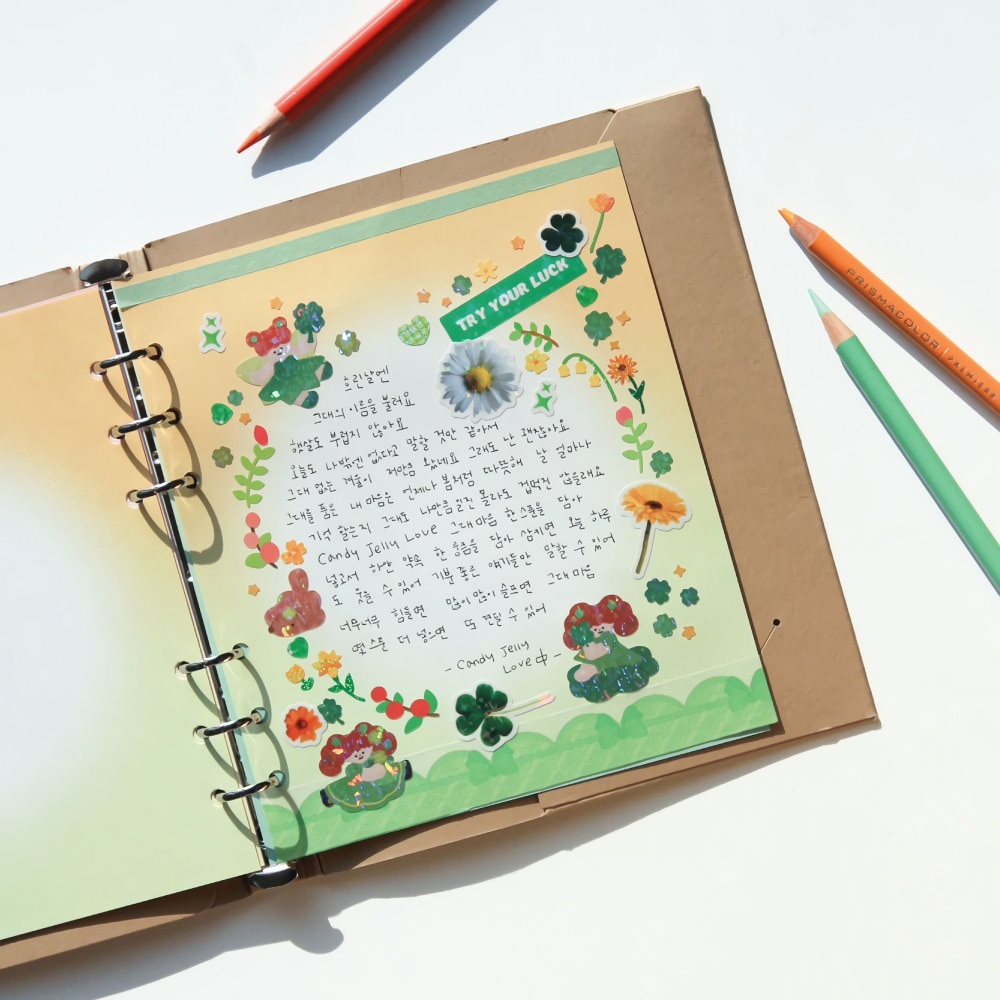 TRY YOUR LUCK
흐린날엔
그대의 이름을 불러요
햇살도 부럽지 않아요
오늘도 나밖엔 없다고 말할 것만 같아서
그대 없는 겨울이 저만큼 왔네요 그래도 난 괜찮아요
그대를 품은 내 마음은 언제나 봄처럼 따뜻해 날 얼마나
기억 할는지 그대도 나만큼 일진 몰라도 겁먹진 않을래요
Candy Jelly Love 그대 마음 한 스푼을 담아
넣고서 하얀 약속 한 웅큼을 담아 삼키면 오늘 하루
도 웃을 수 있어 기분 좋은 얘기들만 말할 수 있어
너무너무 힘들면 많이 많이 슬프면 그대 마음
몇 스푼 더 넣으면 또 견딜 수 있어
- Candy Jelly
Love -
PRISMACOLOR PREMIER